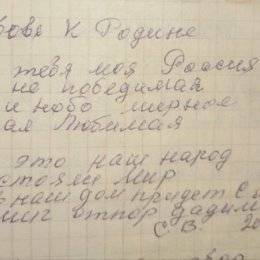 К Родине
тебя моя Россия
не победимая
и небо мирное
ая Любимая
это наш народ
стояли Мир
наш дом придет с
отпор дадим
С. В. 20